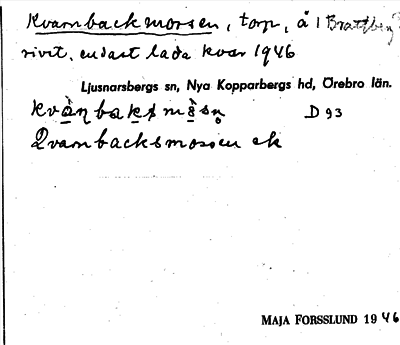 Kvarnbackmossen, torp, å 1 Brattberg
rivet, endast lada kvar 1946
Ljusnarsbergs sn, Nya Kopparbergs hd, Örebro län.
D 93
Qvarnbacksmossen ek
MAJA FORSSLUND 1946